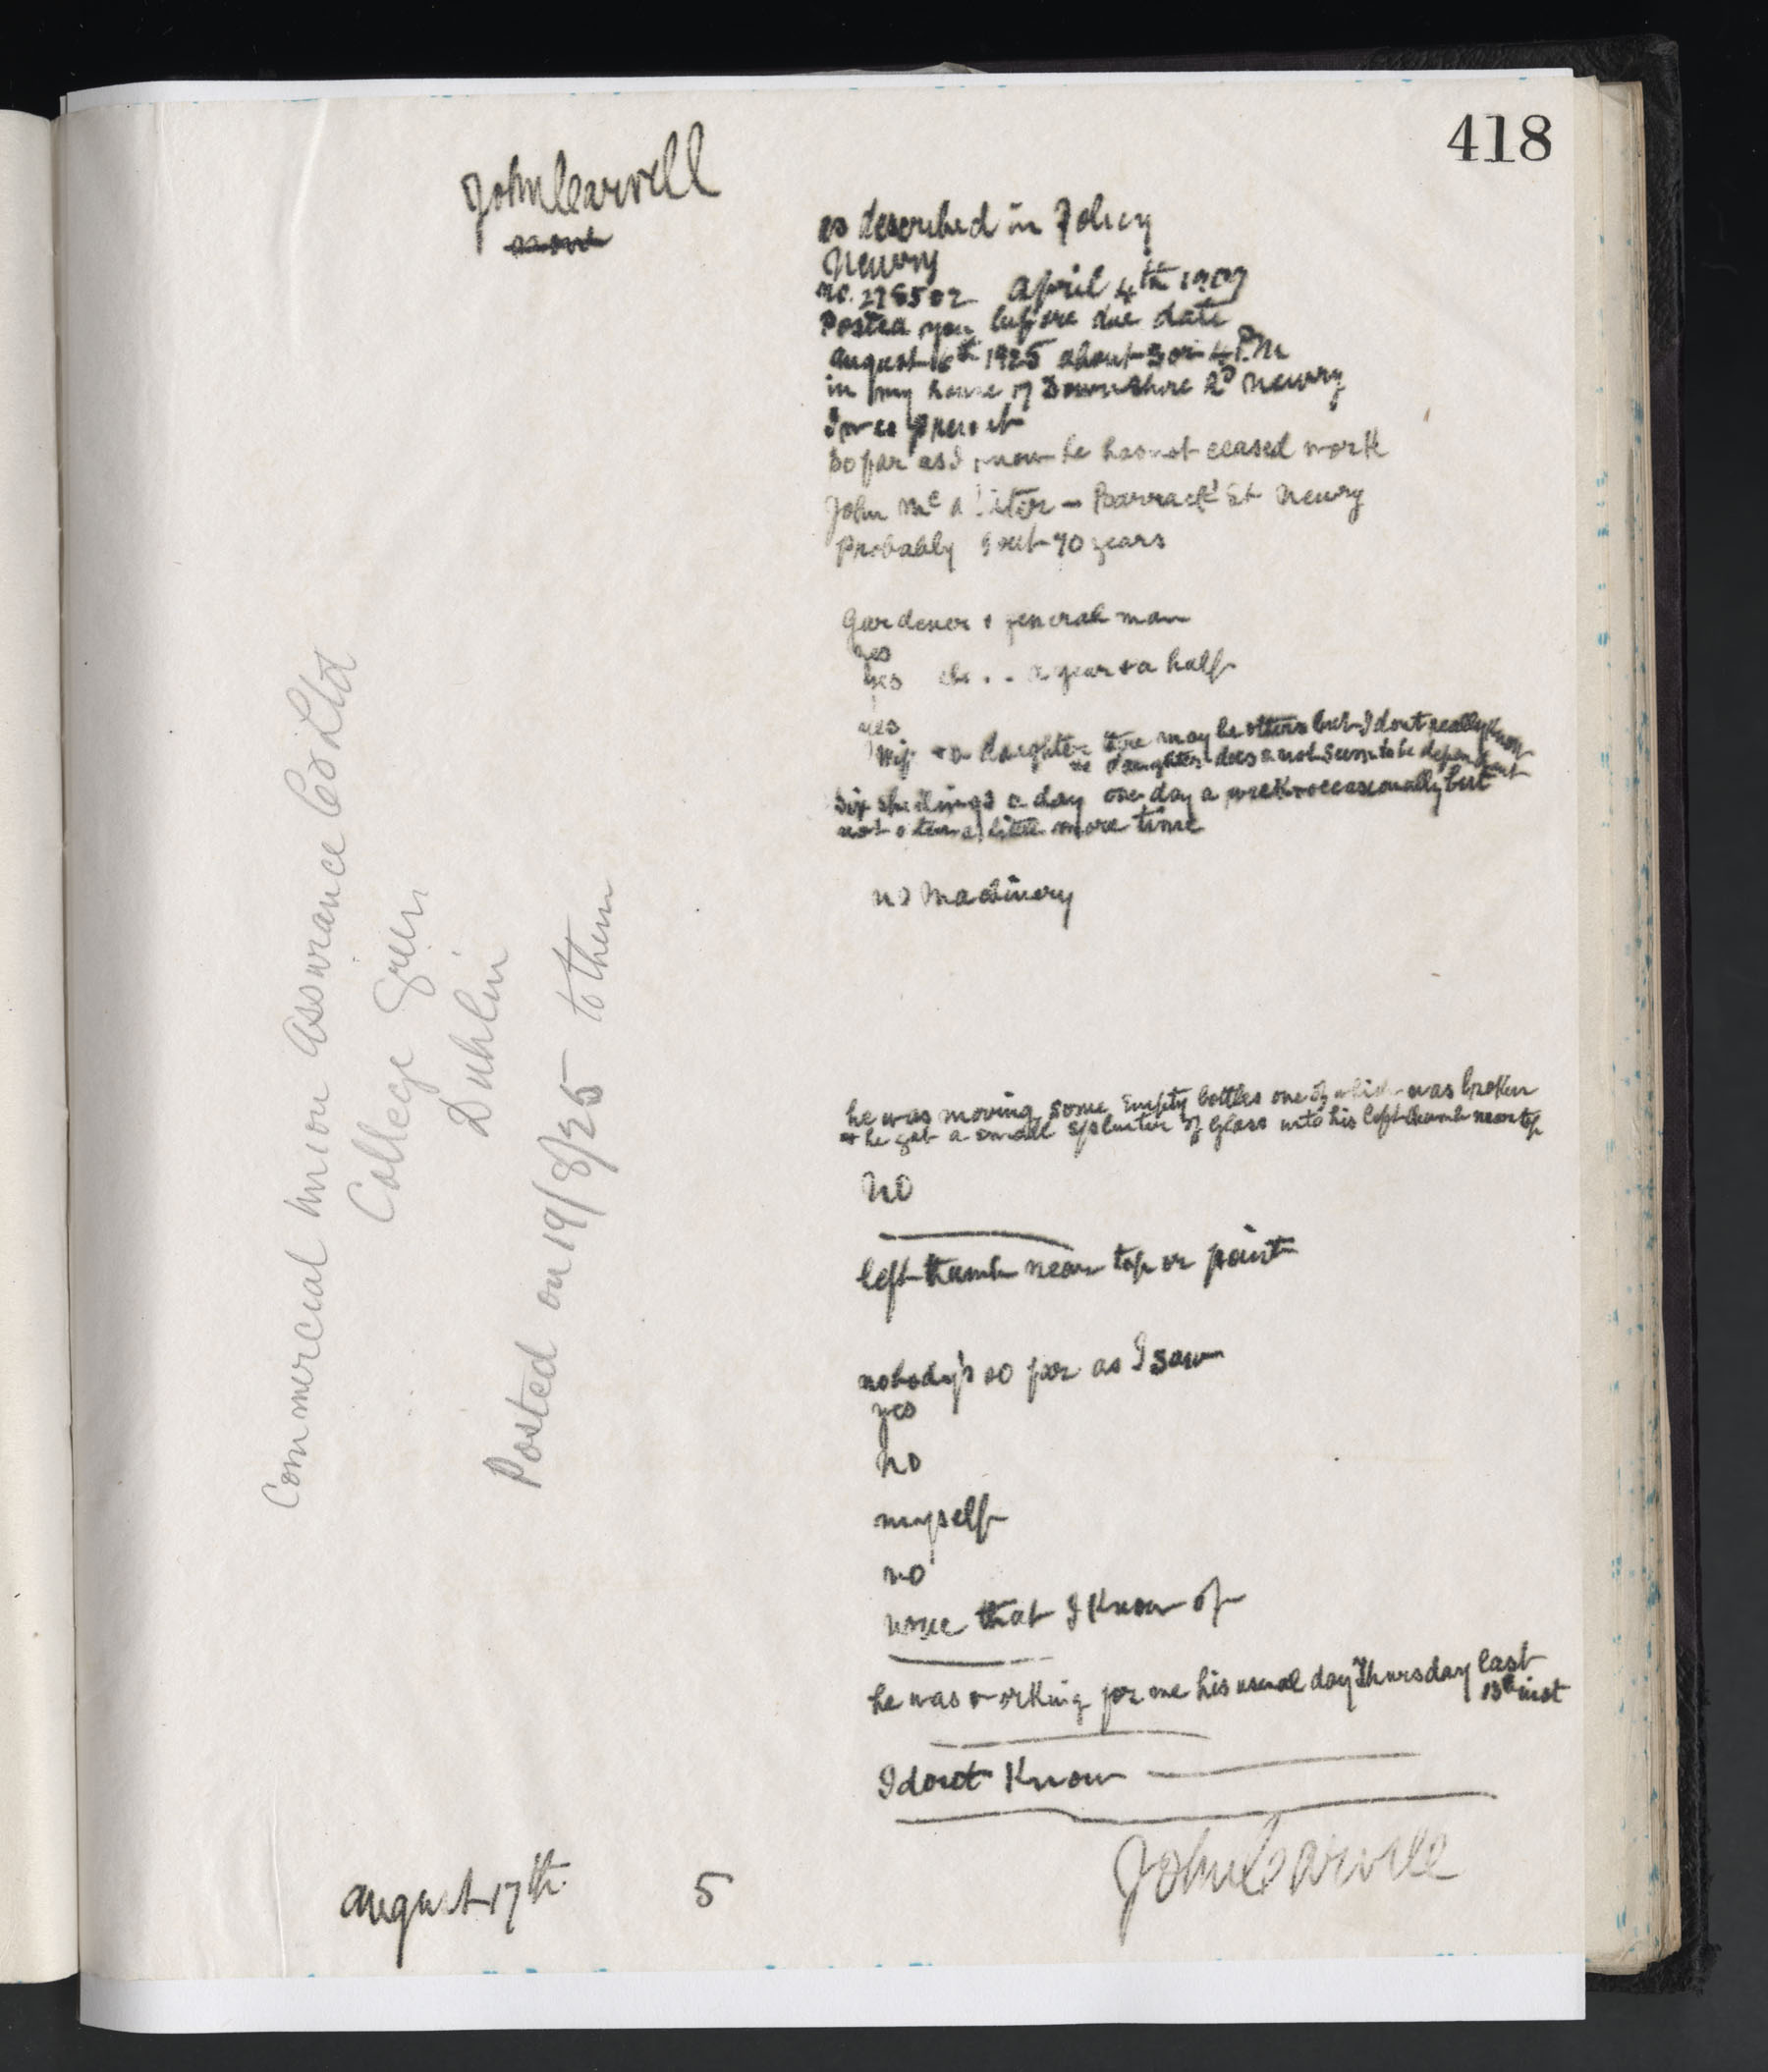 418
John Carvill
as described in Policy
Newry
no. 278502 April 4th 1907
Posted you before due date
August 16th 1925 about 3 or 4 P.M
in my house 17 Downshire Rd Newry
I was present
So far as I know he has not ceased work
John Mc - Barrack St Newry
Probably 70 years
Gardener & general man
yes
yes a year & a half
yes
Wife & a daughter there may be others but I dont really know
the daughter does not seem to be dependent
Six shillings a day one day a week & occasionally but
not often a little more time
no Machinery
he was moving some Empty bottles one of which was broken
& he got a small splinter of glass into his left thumb near top
No
left thumb near top or point
nobodys so far as I saw
yes
No
myself
no
none that I know of
he was working for me his usual day Thursday last
13th inst
I dont Know
John Carvill
August 17th 5
Commercial Union Assurance Co Ltd
College Green
Dublin
Posted on 19/8/25 to them